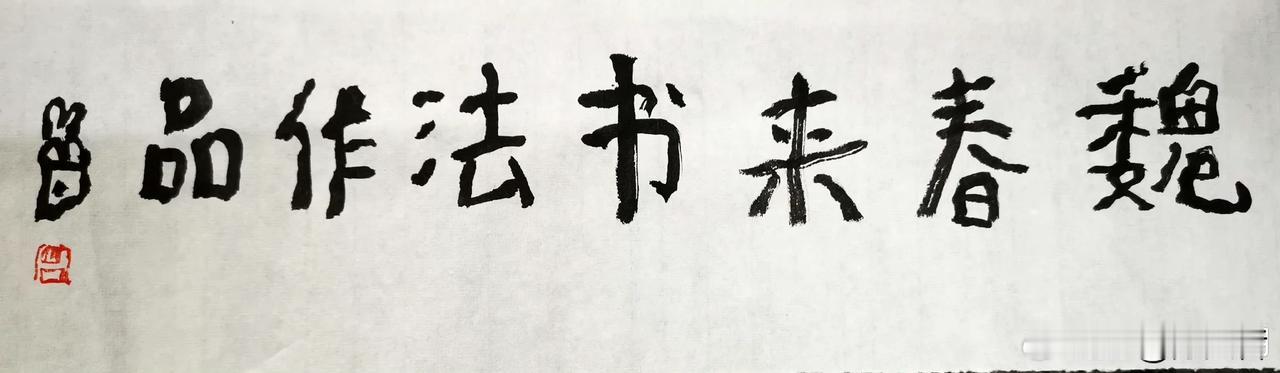 魏春来书法作品